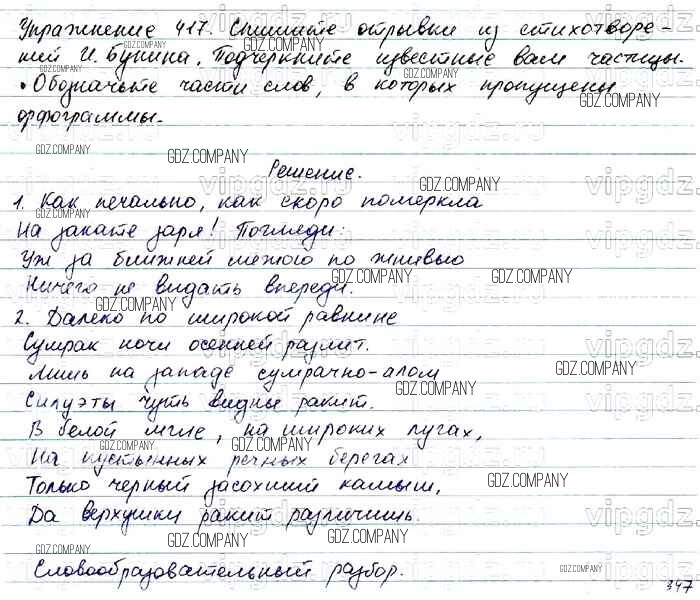 Упражнение 417. Спишите отрывки из стихотворе-
ний И. Бунина. Подчеркните известные вам частицы.
•Обозначьте части слов, в которых пропущены
орфограммы.
Решение.
1. Как печально, как скоро померкла
На закате заря! Погляди:
Уж за ближней межою по жнивью
Ничего не видать впереди.
2. Далеко по широкой равнине
Сумрак ночи осенней разлит.
Лишь на западе сумрачно-алом
Силуэты чуть видны ракит.
В белой мгле, на широких лугах,
На пустынных речных берегах
Только черный засохший камыш,
Да верхушки ракит различишь.
Словообразовательный разбор.
347
GDZ.COMPANY
vipgdz.ru